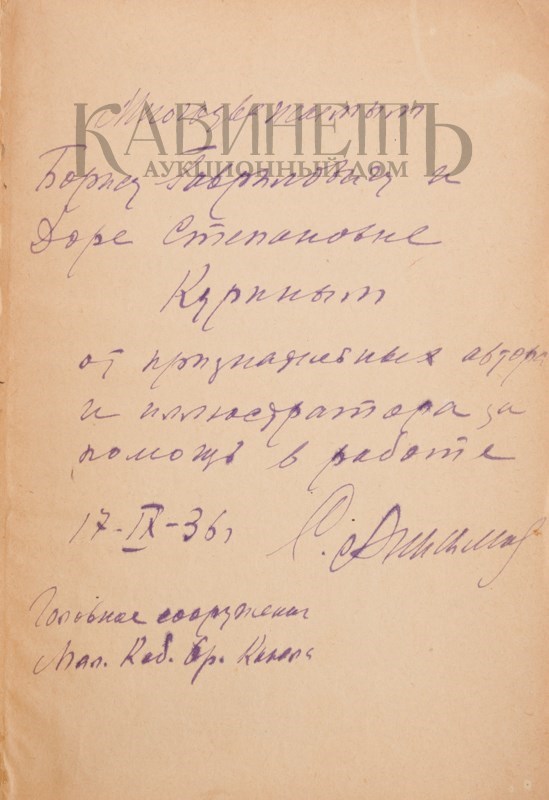 Многоуважаемым
КАБИНЕТЪ
АУКЦИОННЫЙ ДОМ
Борису Гавриловичу и
Доре Степановне
Куриным
от признательных автора
и иллюстратора за
помощь в работе
17-IX-36 г
С.
Головное сооружение
Мал. Каб. Ор. Канала